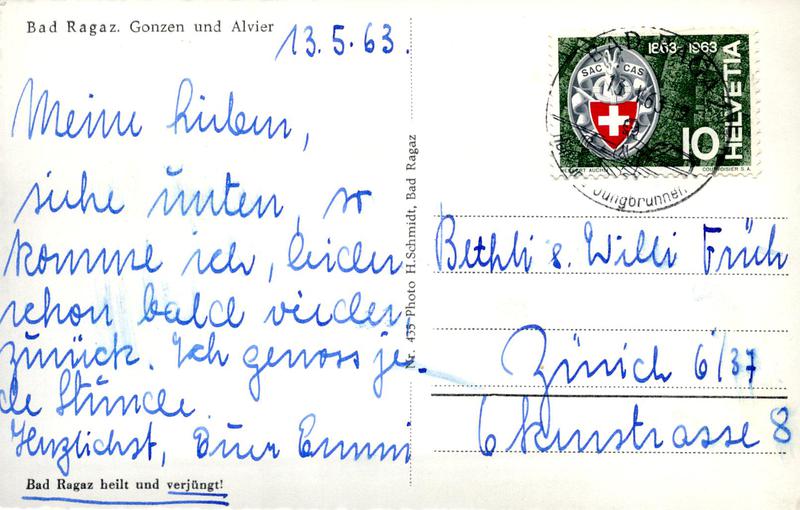 Bad Ragaz. Gonzen und Alvier
13.5.63.
Meine Lieben,
siehe unten, so
komme ich, leider
schon bald wieder
zurück. Ich genoss je-
de Stunde.
Herzlichst, Euer Emmi
Bad Ragaz heilt und verjüngt!
Nr. 435 Photo H. Schmidt, Bad Ragaz
1863-1963
SAC CAS
HELVETIA
10
COURVOISIER S.A.
BAD RAGAZ
Jungbrunnen
Bethli & Willi Früh
Zürich 6/37
8